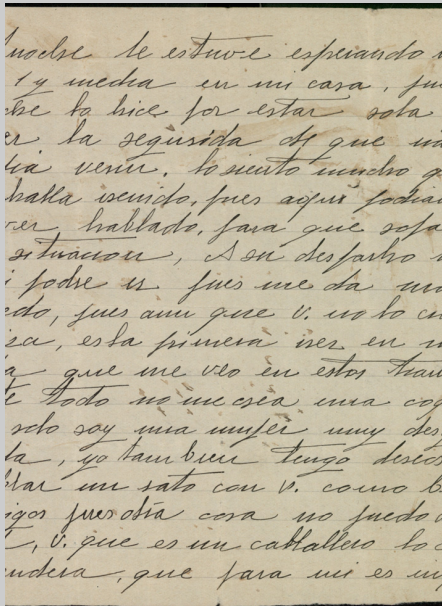 noche le estuve esperando
1 y media en mi casa, pu
che lo hice por estar sola
er la segurida de que na
dia venir. lo siento mucho q
halla venido, pues aqui podia
ver hablado, para que sepa
situacion, A su despacho
i podre ir pues me da mu
edo, pues aun que V. no lo cr
sea, es la primera vez en m
a que me veo en estos tran
te todo no me crea una coq
solo soy una mujer muy des
da, yo tambien tengo deseos
blar un rato con V. como b
igos pues otra cosa no puedo
V. que es un caballero lo c
ndera, que para mi es